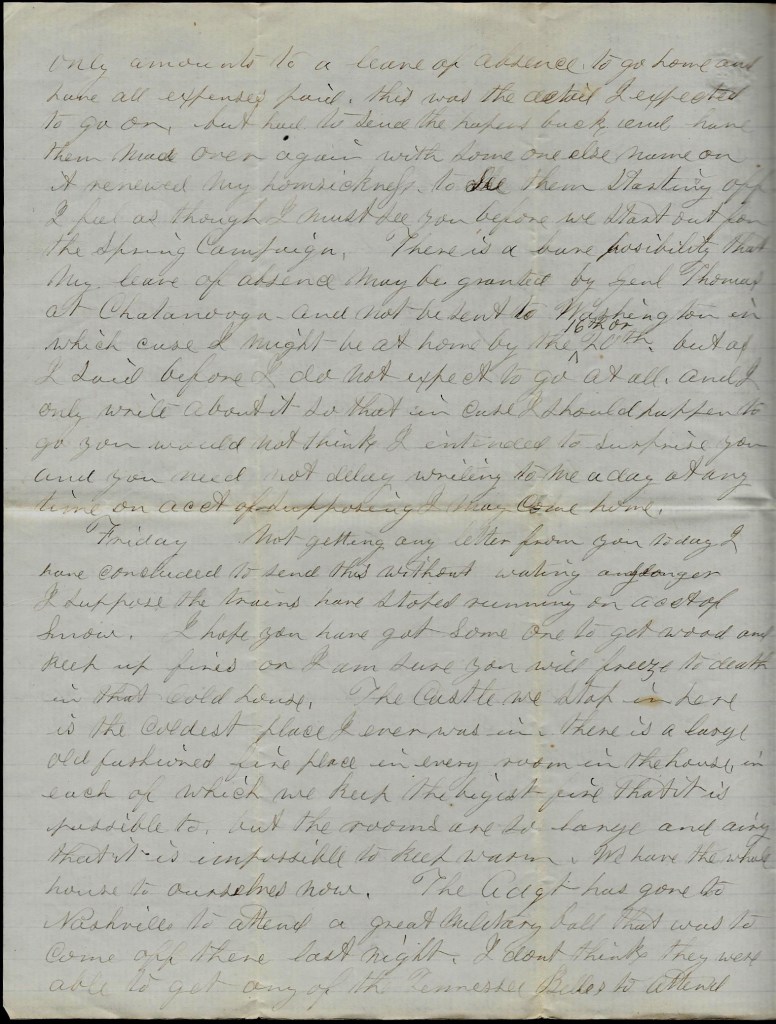 only amounts to a leave of absence to go home and
have all expenses paid. this was the detail I expected
to go on, but had to send the papers back and have
them mad over again with some one else name on
it renewed my homsickness to See them starting off
I feel as though I must see you before we start out for
the Spring Campaign. There is a bare posibility that
My leave of absence may be granted by Genl Thomas
at Chatanooga and not be sent to Washington in
which case I might be at home by the 16th or 20th. but as
I said before I do not expect to go at all. and I
only write about it so that in case I should happen to
go you would not think I intended to surprise you
and you need not delay writing to me a day at any
time on acct of supposing I may come home.
Friday Not getting any letter from you today I
have concluded to send this without wating any longer
I suppose the trains have stoped running on acct of
Snow. I hope you have got some one to get wood and
keep up fires or I am sure you will freeze to death
in that cold house. The Castle we stop in here
is the coldest place I ever was in. there is a large
old fashioned fire place in every room in the house, in
each of which we keep the bigist fire that it is
possible to, but the rooms are so large and airy
that it is impossible to keep warm. We have the whole
house to ourselves now. The Adgt has gone to
Nashville to attend a great Military ball that was to
come off there last night. I dont think they were
able to get any of the Tennessee Belles to attend